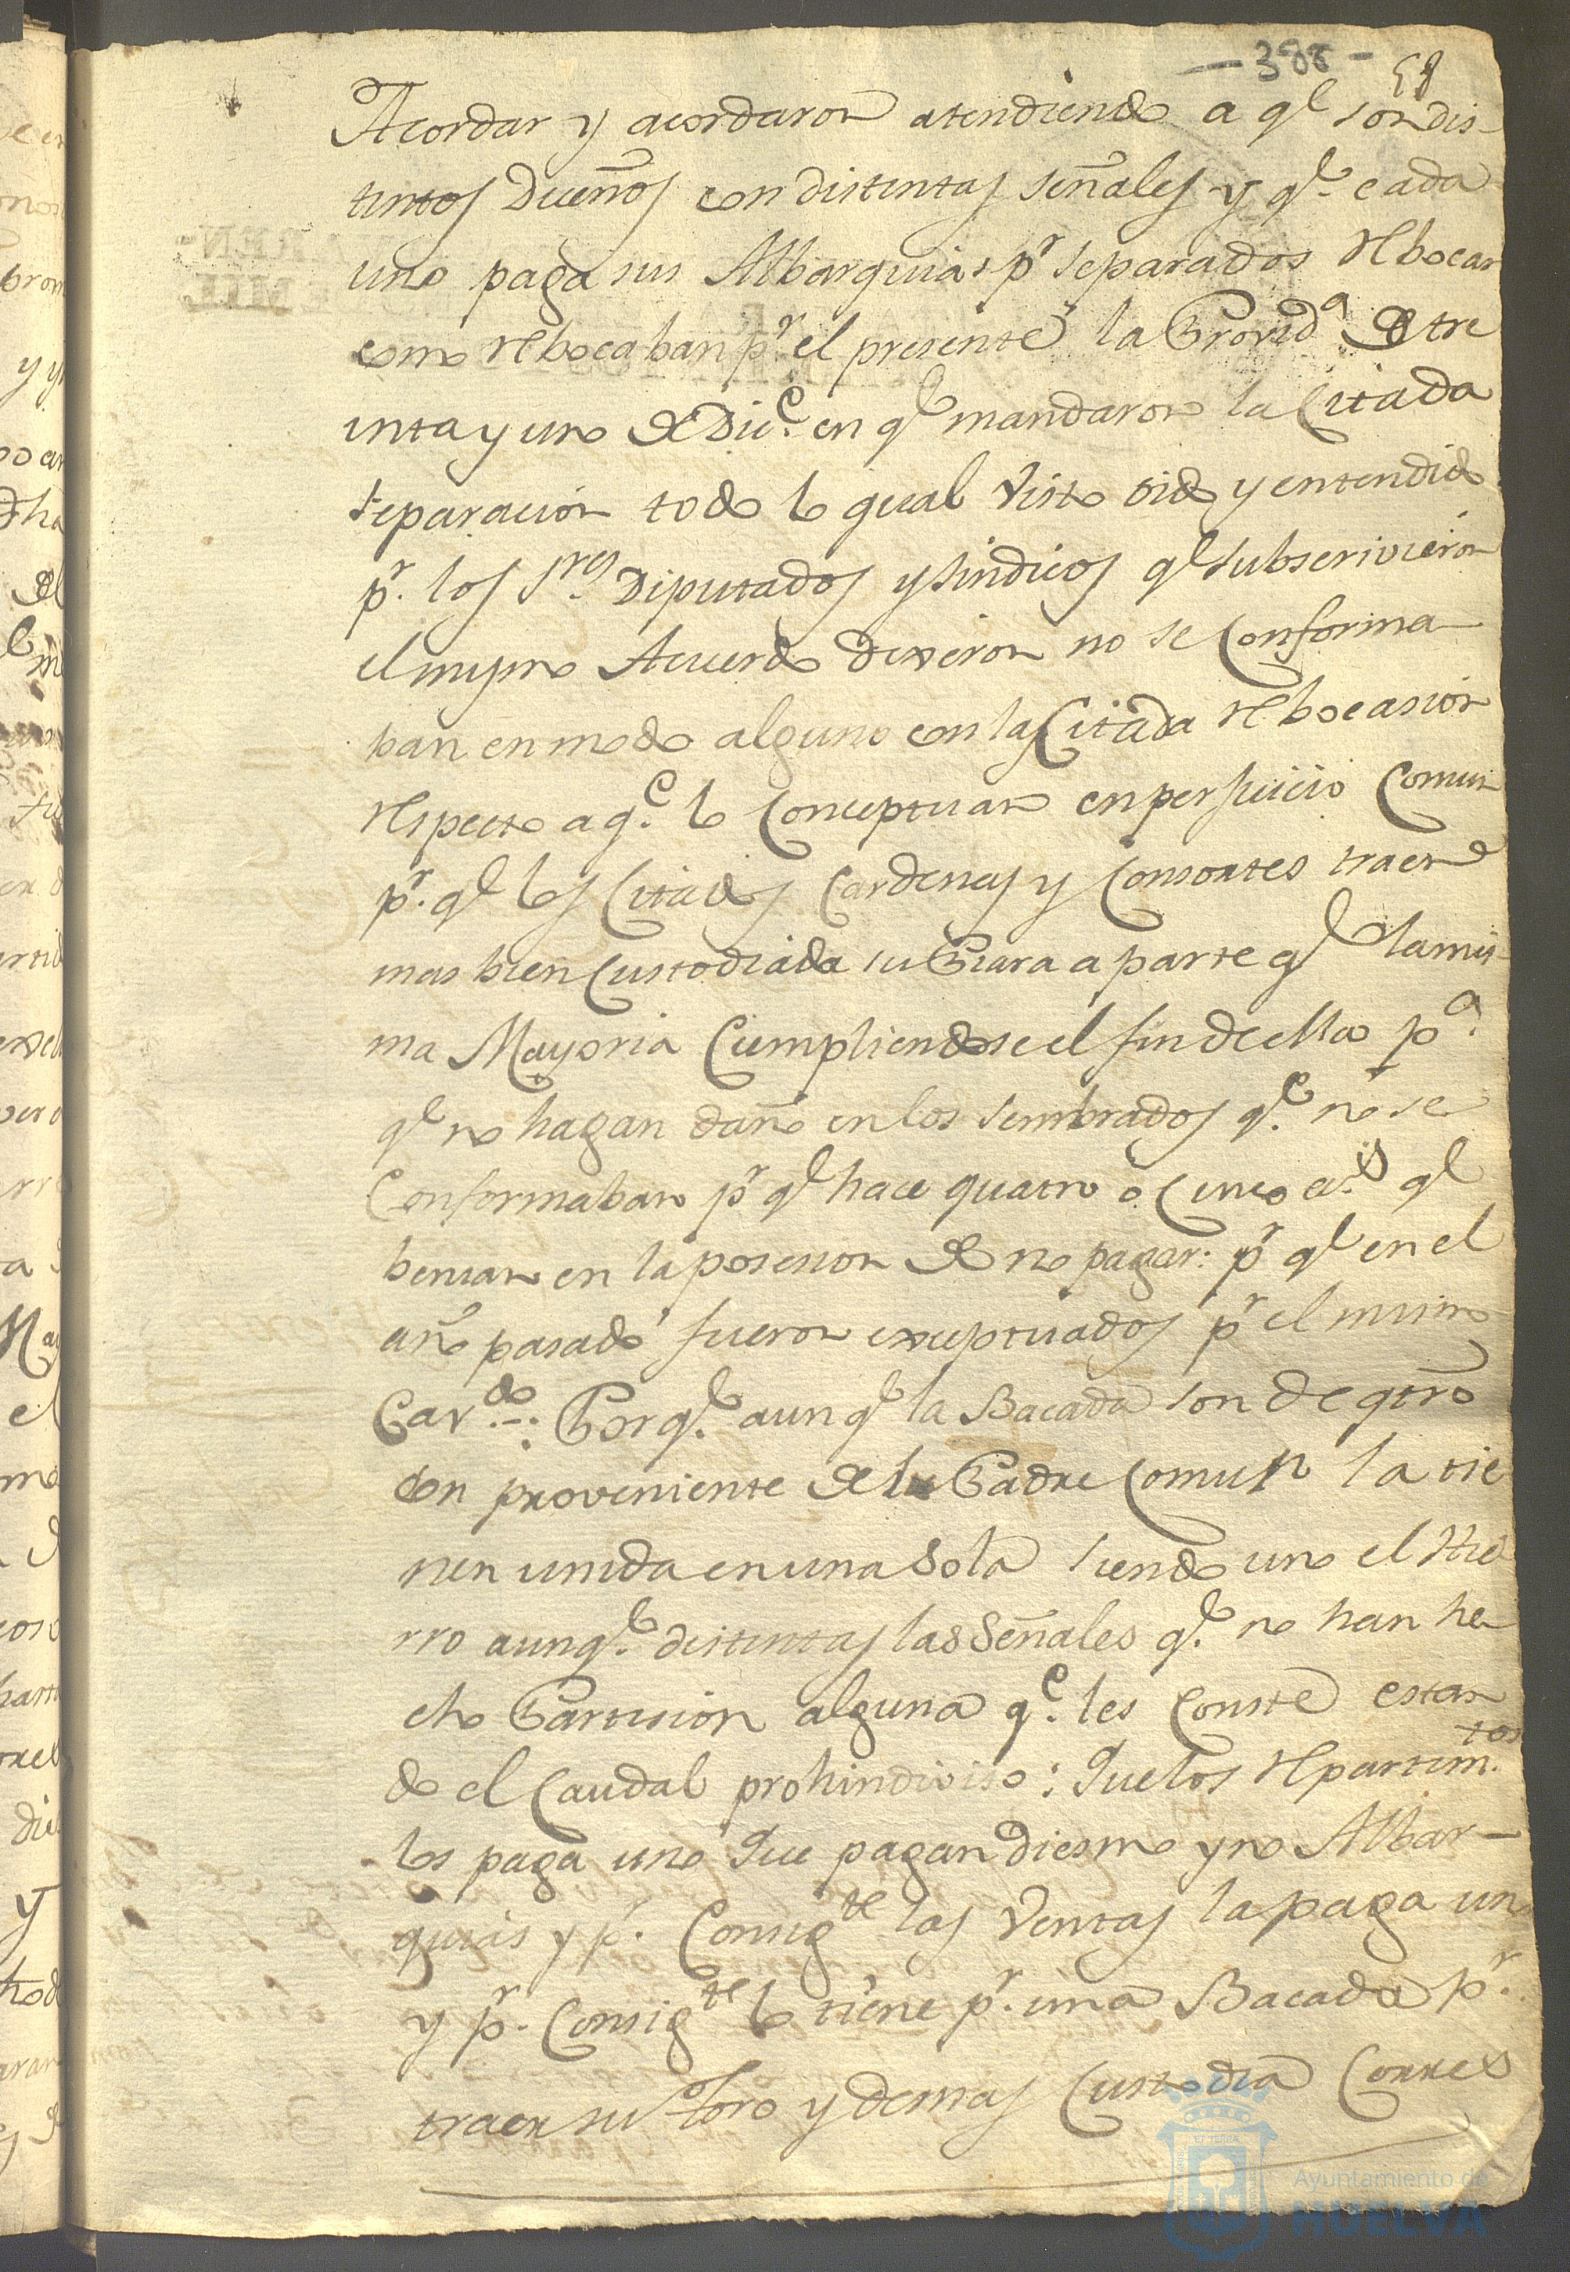 -388- 58
Acordar y acordaron atendiendo a ql son dis-
tintos Dueños con distintas señales y q.l cada
uno paga sus Albarquias pr separados Rebocar
como Rebocaban pr el presente la Provid.a de tre
inta y uno de Dic.e en ql mandaron la Citada
separacion todo lo qual visto oido y entendido
pr. los Sres Diputados y sindicos ql subscrivieron
el mismo Acuerdo dixeron no se Conforma-
ban en modo alguno con la Citada Rebocasion
Respecto a q.e lo Conceptuan en perjuicio Comun
pr. ql los Citados Cardenas y Consortes traen
mas bien Custodiada su Piara a parte ql la mis-
ma Mayoria Cumpliendose el fin de ella p.a
ql no hagan daño en los sembrados q.e no se
Conformaban pr ql hace quatro o Cinco a.s ql
benian en la posesion de no pagar: pr ql en el
año pasado fueron exceptuados pr el mismo
Cav.do: Porq.l aun ql la Bacada son de qtro
con proveniente de la Padre Comun la tie
nen unida en una Sola siendo uno el Hie
rro aunq.l distintas las Señales q.l no han he
cho Partision alguna q.e les Conste estan
do el Caudal prohindiviso: Que los Repartim.tos
los paga uno Que pagan Diesmo y no Albar-
quias y pr. Consig.te las Ventas la paga uno
y pr. Consig.te lo tiene pr. una Bacada pr.
traer su Toro y demas Custodia Corres
Ayuntamiento de
HUELVA